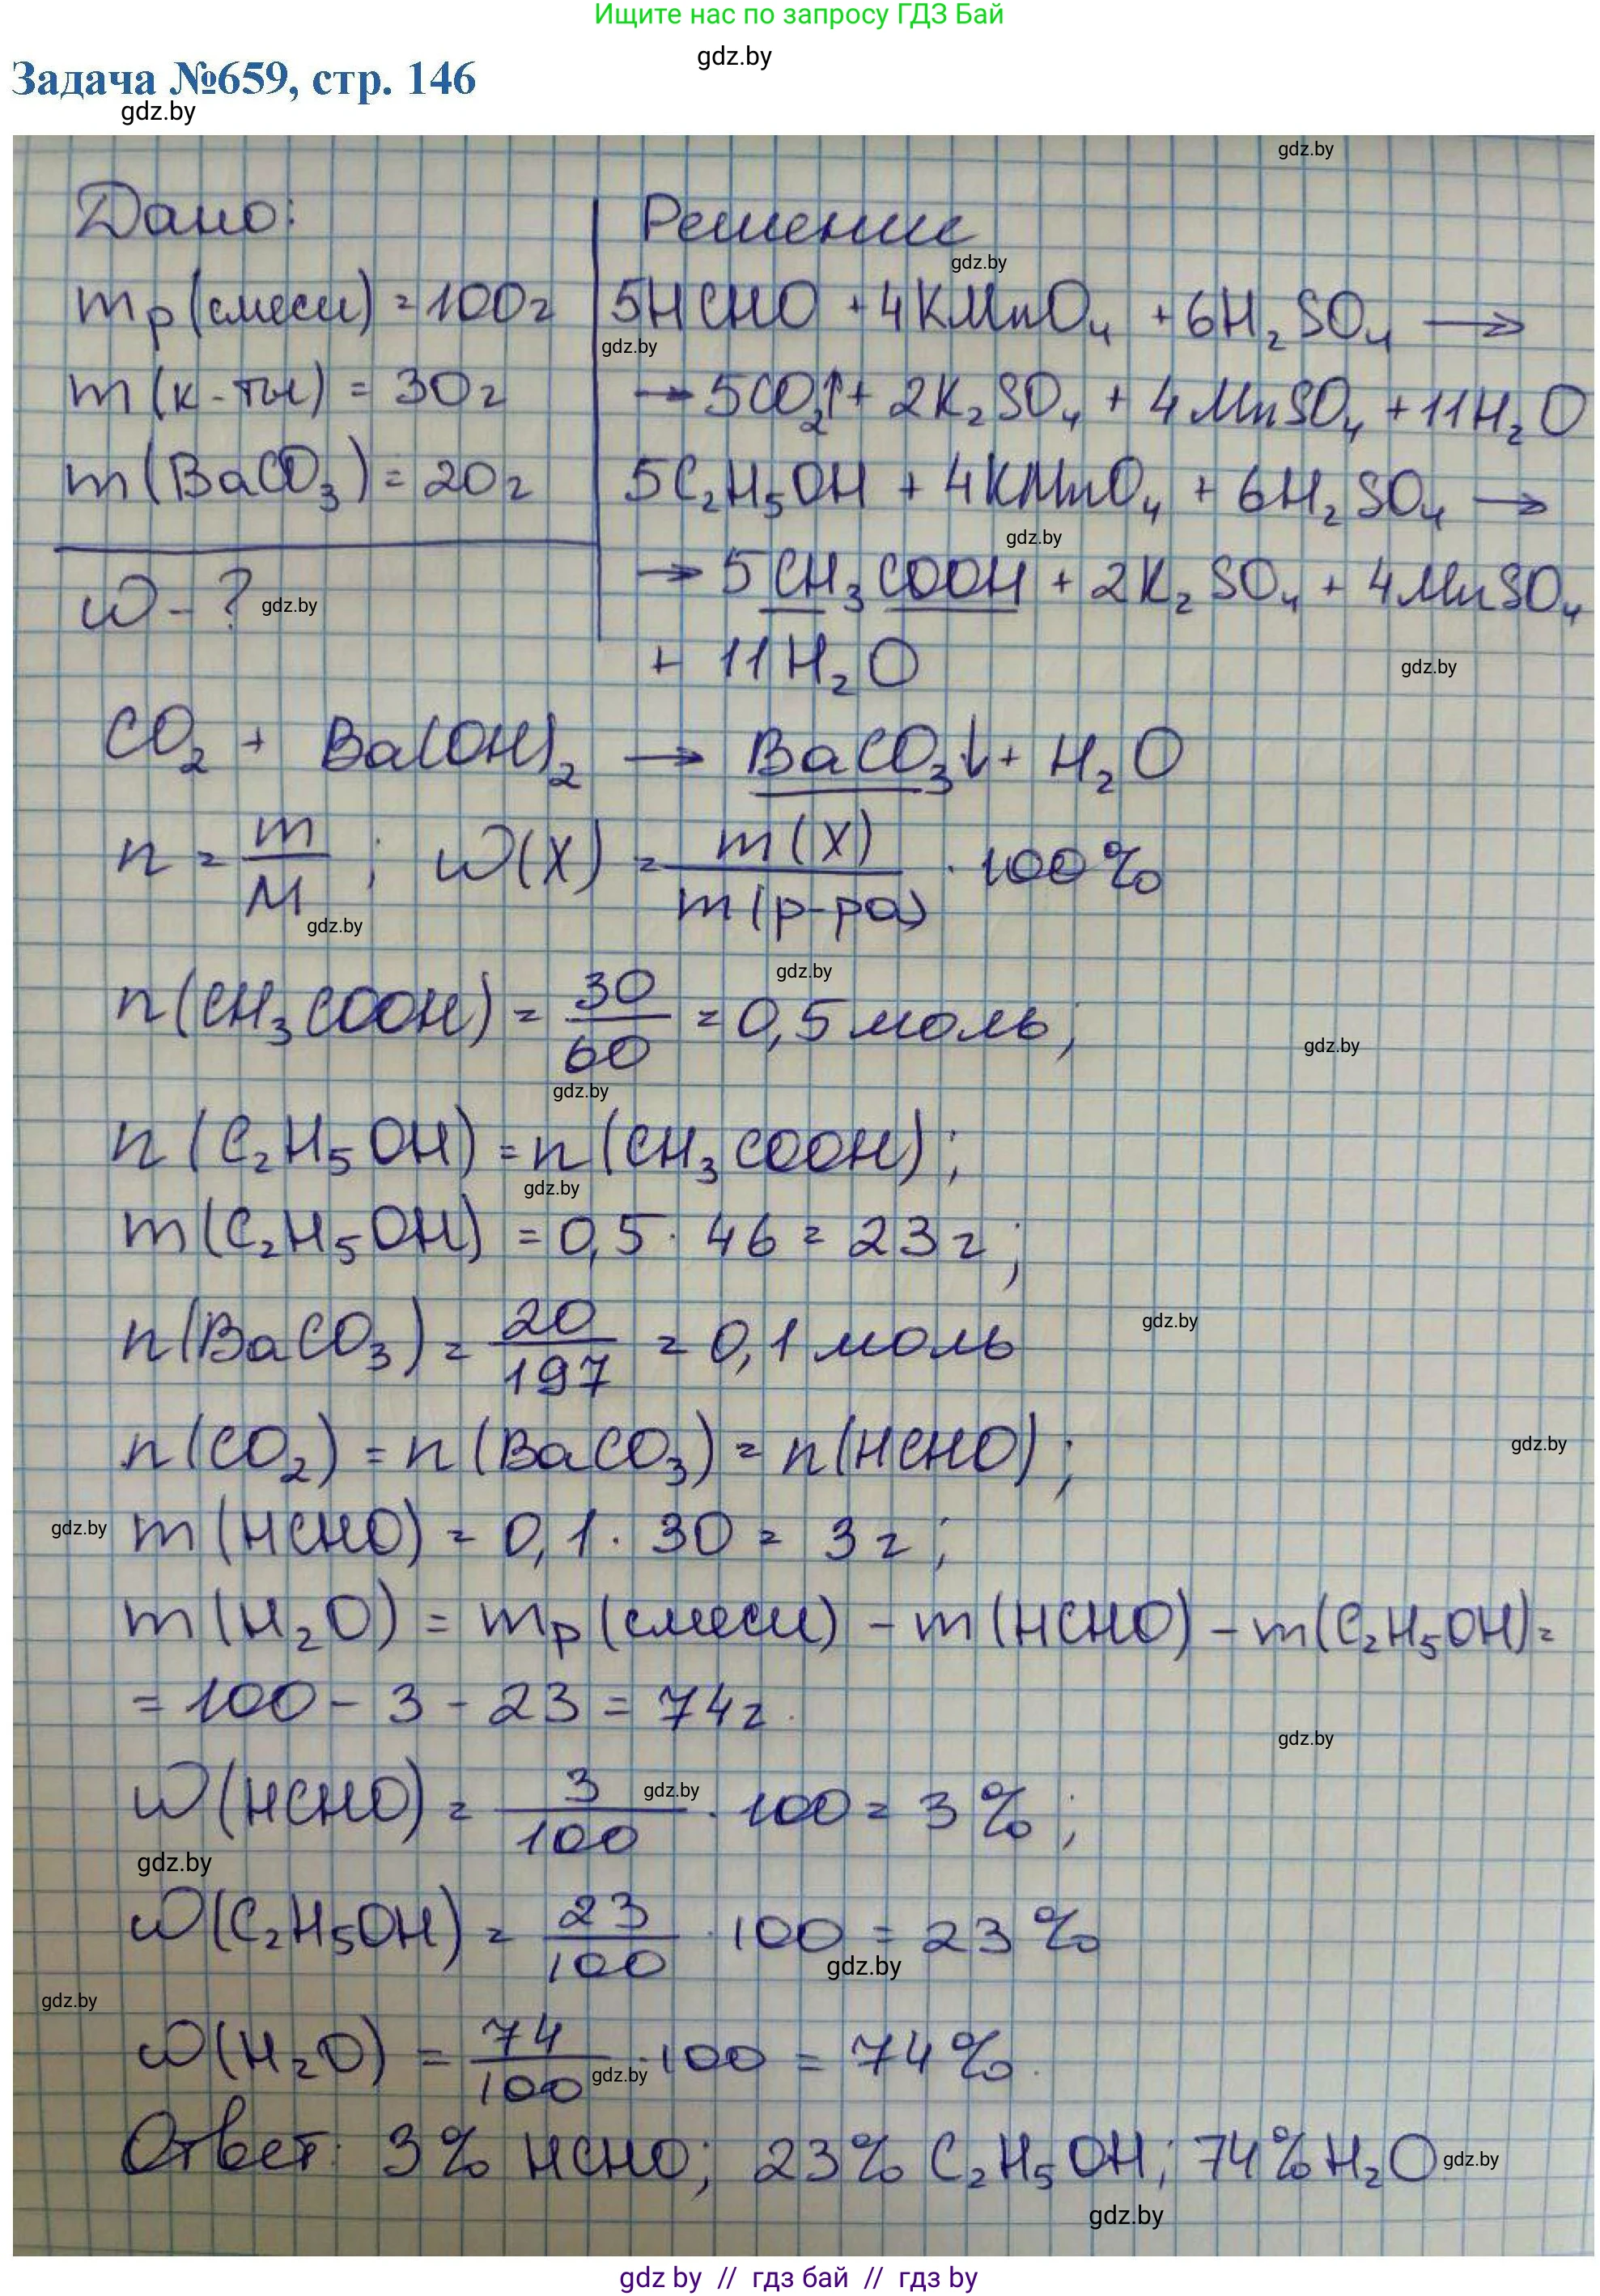 Ищите нас по запросу ГДЗ Бай
gdz.by
Задача №659, стр. 146
gdz.by
gdz.by
Дано:
Решение
gdz.by
mр(смеси) = 100г
5HCHO + 4KMnO₄ + 6H₂SO₄ →
gdz.by
m(к-ты) = 30г
→ 5CO₂↑ + 2K₂SO₄ + 4MnSO₄ + 11H₂O
m(BaCO₃) = 20г
5C₂H₅OH + 4KMnO₄ + 6H₂SO₄ →
gdz.by
w - ?
gdz.by
→ 5CH₃COOH + 2K₂SO₄ + 4MnSO₄
+ 11H₂O
gdz.by
CO₂ + Ba(OH)₂ → BaCO₃↓ + H₂O
n = m/M ; w(X) = m(X)/m(р-ра) · 100%
gdz.by
gdz.by
n(CH₃COOH) = 30/60 = 0,5 моль;
gdz.by
gdz.by
n(C₂H₅OH) = n(CH₃COOH);
gdz.by
m(C₂H₅OH) = 0,5 · 46 = 23г;
gdz.by
n(BaCO₃) = 20/197 = 0,1 моль
n(CO₂) = n(BaCO₃) = n(HCHO);
gdz.by
gdz.by
m(HCHO) = 0,1 · 30 = 3г;
m(H₂O) = mр(смеси) - m(HCHO) - m(C₂H₅OH) =
= 100 - 3 - 23 = 74г.
gdz.by
w(HCHO) = 3/100 · 100 = 3%;
gdz.by
gdz.by
w(C₂H₅OH) = 23/100 · 100 = 23%
gdz.by
gdz.by
w(H₂O) = 74/100 · 100 = 74%.
gdz.by
Ответ: 3% HCHO; 23% C₂H₅OH; 74% H₂O
gdz.by
gdz.by
gdz by // гдз бай // гдз by